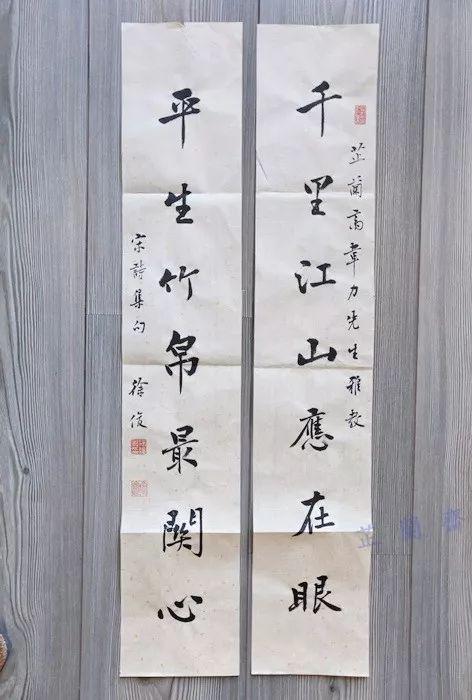 千里江山應在眼
芷蘭齋韋力先生雅教
平生竹帛最關心
宋詩集句 徐俊
芷蘭齋